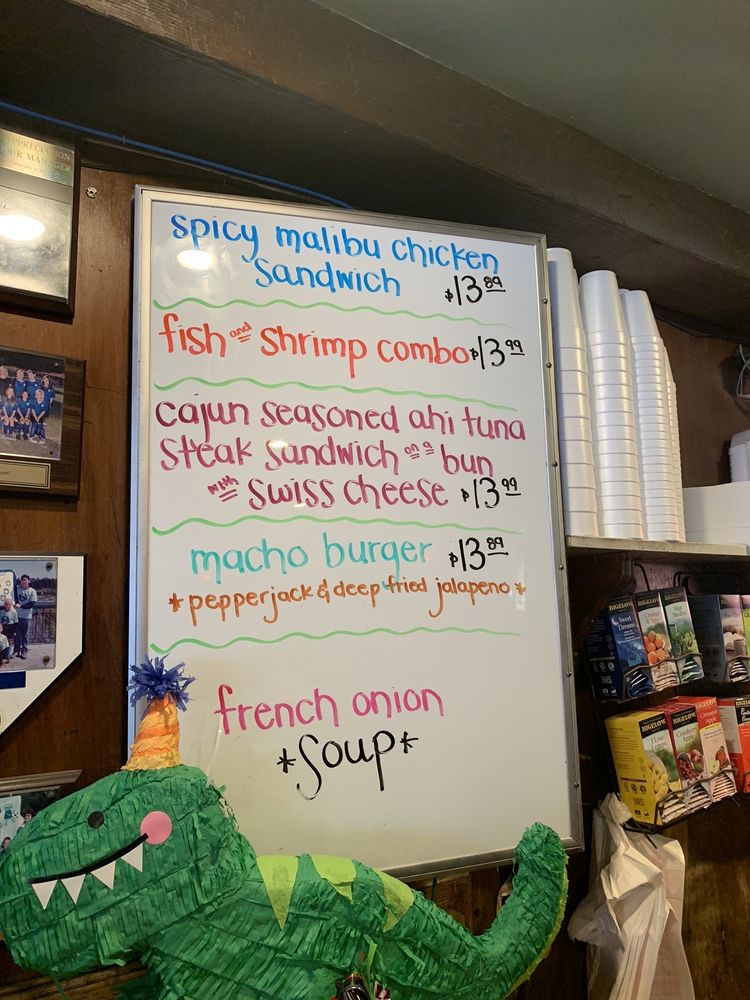 APPRECIATION
OUR MANAGER
spicy malibu chicken
sandwich $13.89
fish and shrimp combo $13.99
cajun seasoned ahi tuna
steak sandwich on a bun
with swiss cheese $13.99
macho burger $13.89
*pepperjack & deep fried jalapeno*
french onion
*Soup*
BIGELOW
BIGELOW
BIGELOW
Sweet Dreams
BIGELOW
BIGELOW
BIGELOW
BIGELOW